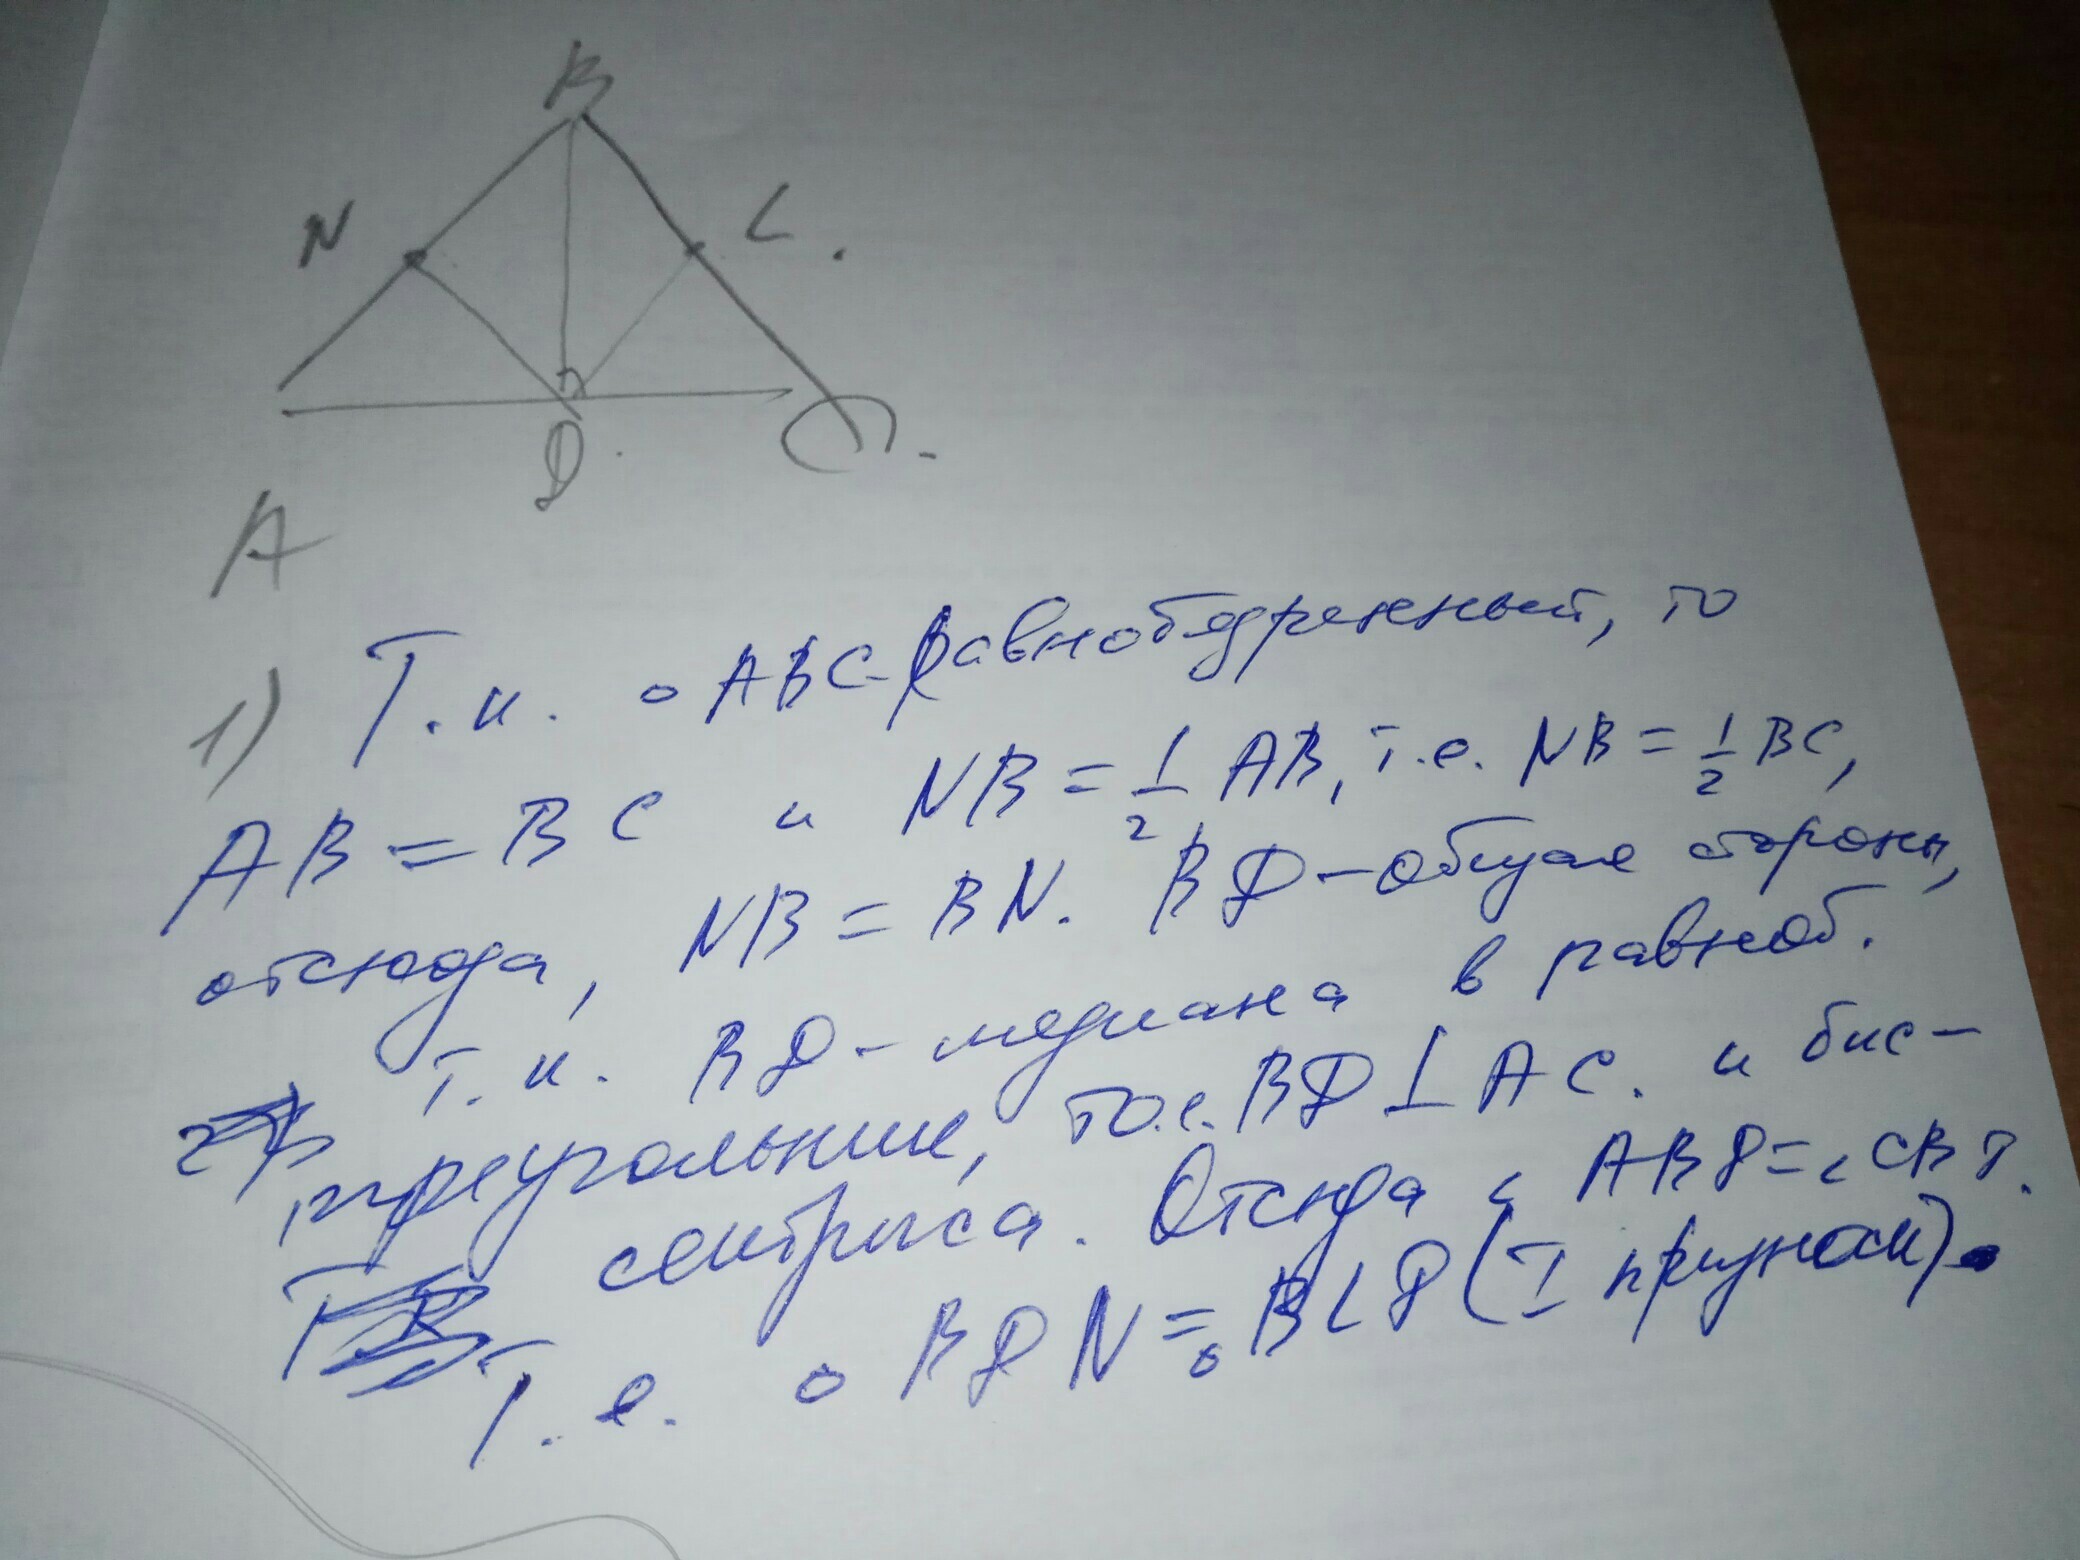 B
N
L
D
C
A
1) Т.к. ∆ ABC - равнобедренный, то
AB = BC и NB = 1/2 AB, т.е. NB = 1/2 BC,
отсюда, NB = BN. BD - общая сторона,
т.к. BD - медиана в равноб.
треугольнике, то BD ⊥ AC. и бис-
сектриса. Отсюда ∠ ABD = ∠ CBD.
Т.е. ∆ BDN = ∆ BLD (I признак).